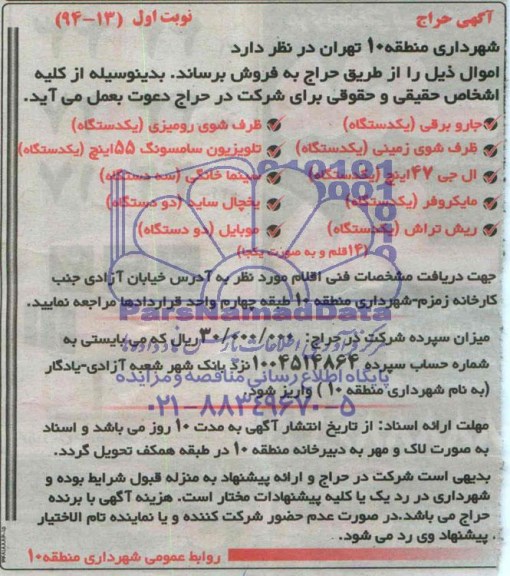 آگهی حراج
نوبت اول (۱۳-۹۴)
شهرداری منطقه۱۰ تهران در نظر دارد
اموال ذیل را از طریق حراج به فروش برساند. بدینوسیله از کلیه
اشخاص حقیقی و حقوقی برای شرکت در حراج دعوت بعمل می آید.
جارو برقی (یکدستگاه) ظرف شوی رومیزی (یکدستگاه)
ظرف شوی زمینی (یکدستگاه) تلویزیون سامسونگ ۵۵اینچ (یکدستگاه)
ال جی ۴۷اینچ (یکدستگاه) سینما خانگی (سه دستگاه)
مایکروفر (یکدستگاه) یخچال ساید (دو دستگاه)
ریش تراش (یکدستگاه) موبایل (دو دستگاه)
(۱۴قلم و به صورت یکجا)
جهت دریافت مشخصات فنی اقلام مورد نظر به آدرس خیابان آزادی جنب
کارخانه زمزم-شهرداری منطقه ۱۰ طبقه چهارم واحد قراردادها مراجعه نمایید.
ParsNamadData
میزان سپرده شرکت در حراج: ۳۰/۰۰۰/۰۰۰ ریال که می بایستی به
شماره حساب سپرده ۱۰۰۴۵۱۴۸۶۴ نزد بانک شهر شعبه آزادی-یادگار
پایگاه اطلاع رسانی مناقصه و مزایده
(به نام شهرداری منطقه ۱۰ ) واریز شود.
۰۲۱-۸۸۳۴۹۶۷۰-۵
مهلت ارائه اسناد: از تاریخ انتشار آگهی به مدت ۱۰ روز می باشد و اسناد
به صورت لاک و مهر به دبیرخانه منطقه ۱۰ در طبقه همکف تحویل گردد.
بدیهی است شرکت در حراج و ارائه پیشنهاد به منزله قبول شرایط بوده و
شهرداری در رد یک یا کلیه پیشنهادات مختار است. هزینه آگهی با برنده
حراج می باشد.در صورت عدم حضور شرکت کننده و یا نماینده تام الاختیار
. پیشنهاد وی رد می شود.
روابط عمومی شهرداری منطقه۱۰